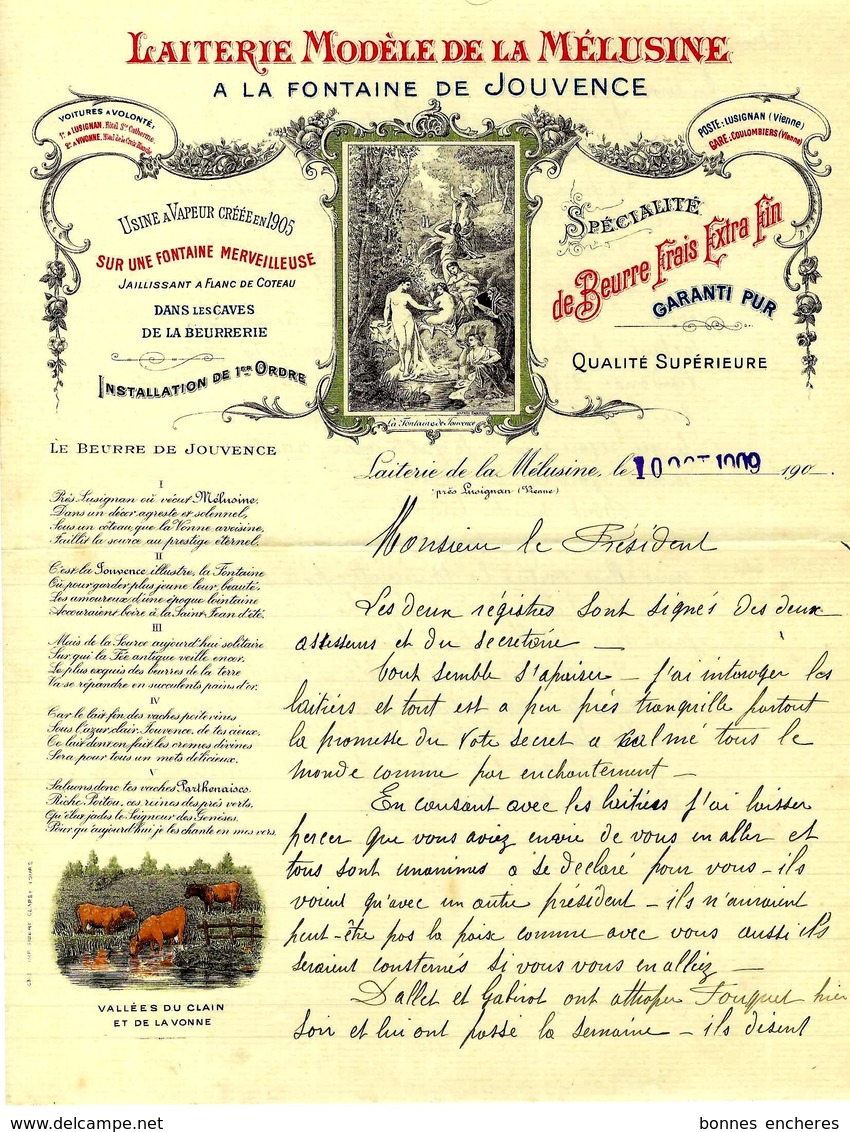 LAITERIE MODÈLE DE LA MÉLUSINE
A LA FONTAINE DE JOUVENCE
VOITURES A VOLONTÉ:
1° à LUSIGNAN, Hôtel Ste Catherine
2° à VIVONNE, Hôtel de la Croix Blanche
POSTE: LUSIGNAN (Vienne)
GARE: COULOMBIERS (Vienne)
USINE A VAPEUR CRÉÉE EN 1905
SUR UNE FONTAINE MERVEILLEUSE
JAILLISSANT A FLANC DE COTEAU
DANS LES CAVES
DE LA BEURRERIE
INSTALLATION DE 1ER ORDRE
La Fontaine de Jouvence
SPÉCIALITÉ
de Beurre Frais Extra Fin
GARANTI PUR
QUALITÉ SUPÉRIEURE
LE BEURRE DE JOUVENCE
I
Près Lusignan où vécut Mélusine,
Dans un décor agreste et solennel,
Sous un côteau que la Vonne avoisine,
Jaillit la source au prestige éternel.
II
C'est la Jouvence illustre, la Fontaine
Où pour garder plus jeune leur beauté,
Les amoureux d'une époque lointaine
Accouraient boire à la Saint Jean d'été.
III
Mais de la Source aujourd'hui solitaire
Sur qui la Fée antique veille encor,
Le plus exquis des beurres de la terre
Va se répandre en succulents pains d'or.
IV
Car le lait fin des vaches poitevines
Sous l'azur clair, Jouvence, de tes cieux,
Ce lait dont on fait les crèmes divines
Sera pour tous un mets délicieux.
V
Saluons donc tes vaches Parthenaises
Riche Poitou, ces reines des prés verts,
Qu'eux jades le Seigneur des Genèses,
Pour qu'aujourd'hui je les chante en mes vers.
VALLÉES DU CLAIN
ET DE LA VONNE
Laiterie de la Mélusine, le 10 OCT 1909 190
près Lusignan (Vienne)
Monsieur le Président
Les deux régistres sont signés des deux
assesseurs et du secretaire —
Tout semble s'apaiser — j'ai intérroger les
laitiers et tout est a peu près tranquille partout
la promesse du vote secret a calmé tous le
monde comme par enchantement —
En causant avec les laitiers j'ai laisser
percer que vous aviez envie de vous en aller et
tous sont unanimes a se declaré pour vous — ils
voient qu'avec un autre président — ils n'auraient
peut-être pas la paix comme avec vous aussi ils
seraient consternés si vous vous en alliez —
Dallet et Gabirot ont attraper Fouquet hier
soir et lui ont passé la semaine — ils disent
bonnes encheres
www.delcampe.net